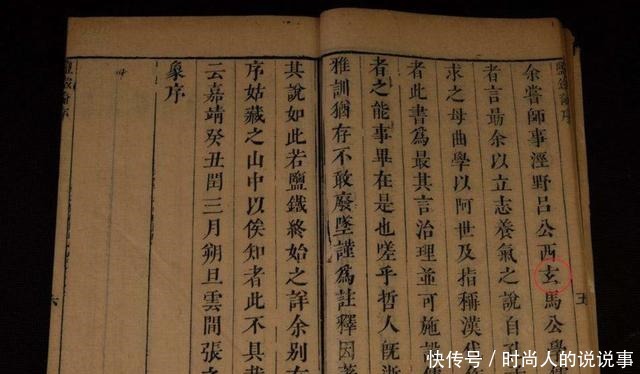 鹽鐵論序
余嘗師事涇野呂公西玄馬公學
者言最余以立志養氣之說自
求之母曲學以阿世及指稱漢代
者此書為最其言治理並可施設
者之能事畢在是也嗟乎哲人既逝
雅訓猶存不敢廢墜謹為註釋因著
其說如此若鹽鐵終始之詳余別有
序姑藏之山中以俟知者此不具載
云嘉靖癸丑閏三月朔旦雲間張之
象序
五
六
快传号／时尚人的说说事